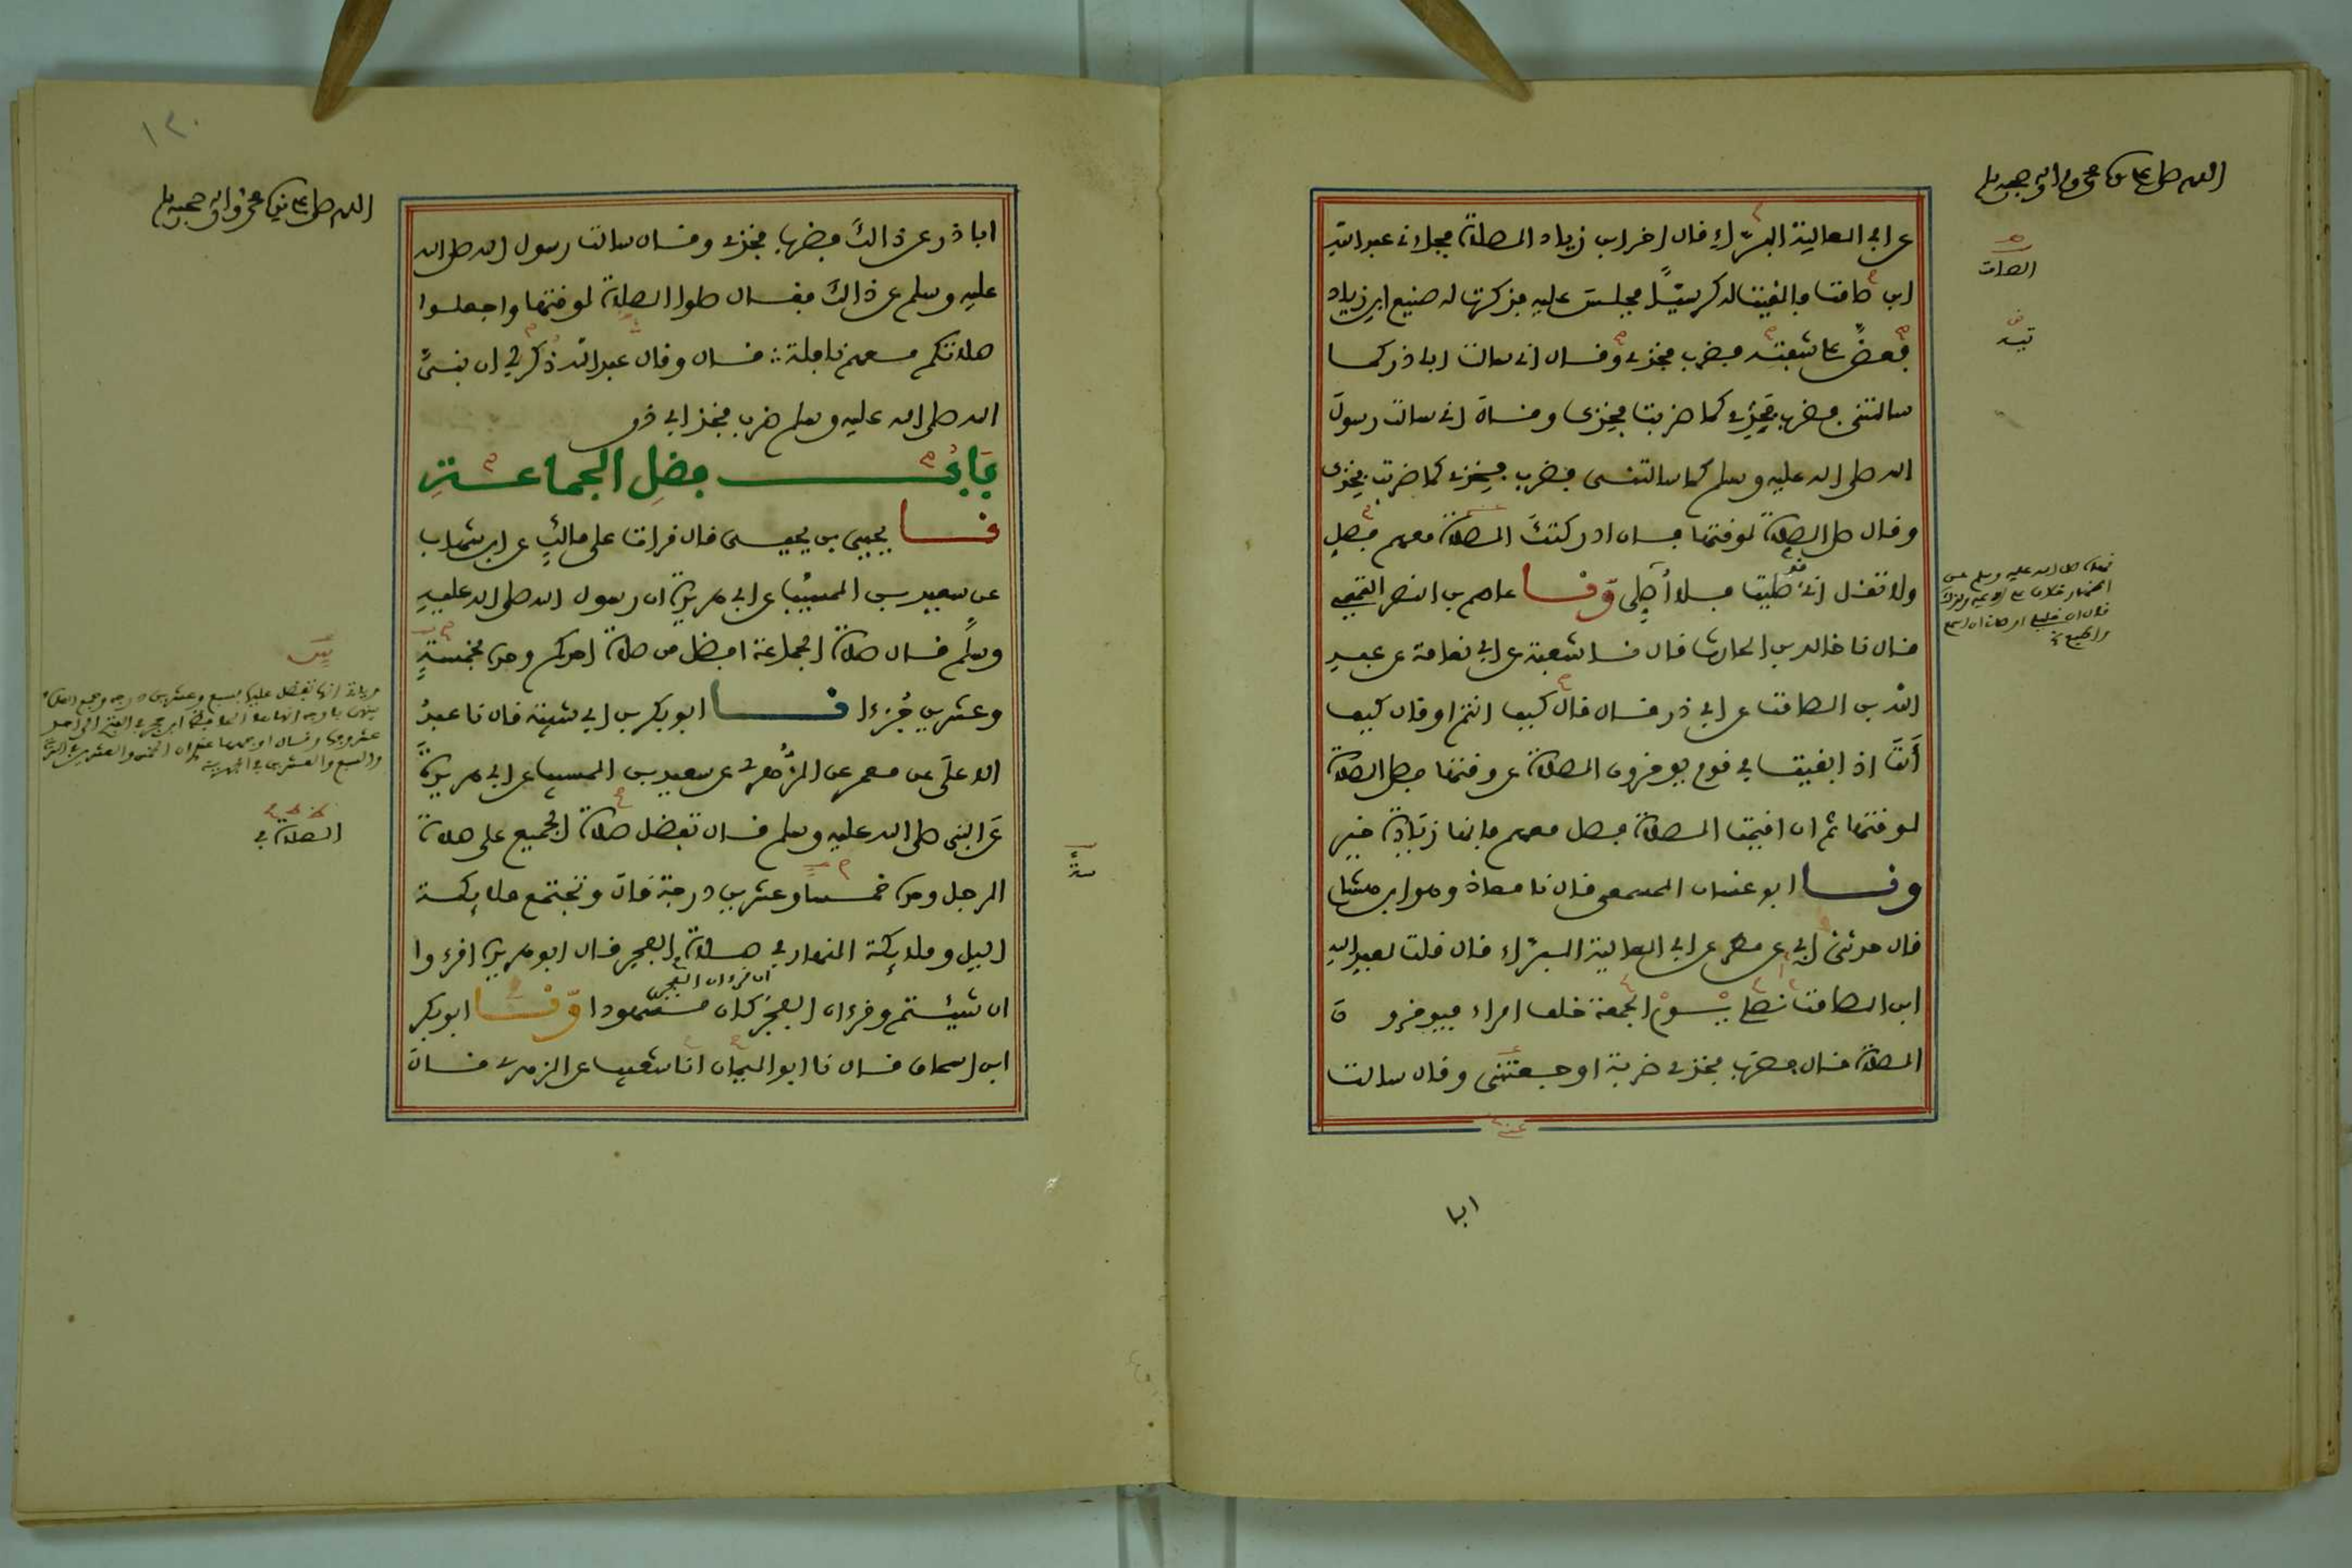 اللهم صل على سيدنا محمد وآله وصحبه وسلم
عن ابي العالية البرّاء قال اخر ابن زياد الصلاة فجاءني عبد الله
ابن صامت فالقيت له كرسيًّا فجلس عليه فذكرت له صنيع ابن زياد
فعضّ على شفته فضرب فخذي وقال اني سالت ابا ذر كما
سالتني فضرب فخذي كما ضربت فخذك وقال اني سالت رسول
الله صلى الله عليه وسلم كما سالتني فضرب فخذي كما ضربت فخذك
وقال صل الصلاة لوقتها فان ادركتك الصلاة معهم فصل
ولا تقل اني قد صليت فلا أصلي وّنا عاصم بن النضر التيمي
قال نا خالد بن الحارث قال نا شعبة عن ابي نعامة عن عبد
الله بن الصامت عن ابي ذر قال قال كيف انتم او قال كيف
أنت اذا بقيت في قوم يوخرون الصلاة عن وقتها فصل الصلاة
لوقتها ثم ان اقيمت الصلاة فصل معهم فانها زيادة خير
ونا ابو غسان المسمعي قال نا معاذ وهو ابن هشام
قال حدثني ابي عن مطر عن ابي العالية البرّاء قال قلت لعبد الله
ابن الصامت نصلي يوم الجمعة خلف امراء فيوخرون
الصلاة قال فضرب فخذي ضربة اوجعتني وقال سالت
ابا
الصامت
١٣٠
اللهم صل على سيدنا محمد وآله وصحبه وسلم
ابا ذر عن ذالك فضرب فخذي وقال سالت رسول الله صلى الله
عليه وسلم عن ذالك فقال صلوا الصلاة لوقتها واجعلوا
صلاتكم معهم نافلة قال وقال عبد الله ذكر لي ان نبيّ
الله صلى الله عليه وسلم ضرب فخذ ابي ذر
باب فضل الجماعة
نا يحيى بن يحيى قال قرات على مالك عن ابن شهاب
عن سعيد بن المسيب عن ابي هريرة ان رسول الله صلى الله عليه
وسلم قال صلاة الجماعة افضل من صلاة احدكم وحده بخمسة
وعشرين جزءا نا ابو بكر بن ابي شيبة قال نا عبد
الاعلى عن معمر عن الزهري عن سعيد بن المسيب عن ابي هريرة
عن النبي صلى الله عليه وسلم قال تفضل صلاة الجميع على صلاة
الرجل وحده خمسا وعشرين درجة قال وتجتمع ملايكة
اليل وملايكة النهار في صلاة الفجر قال ابو هريرة اقرءوا
ان شيئتم وقرءان الفجر ان قرءان الفجر كان مشهودا وّنا ابو بكر
ابن اسحاق قال نا ابو اليمان انا شعيب عن الزهري قال
الصلاة في